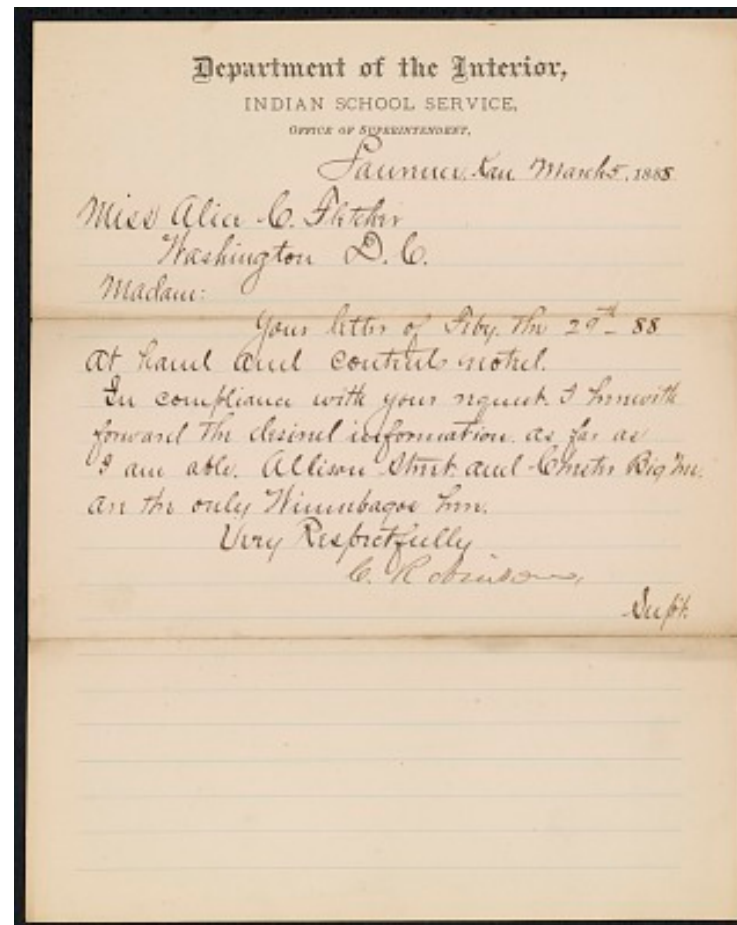 Department of the Interior,
INDIAN SCHOOL SERVICE,
OFFICE OF SUPERINTENDENT,
Lawrence, Kan. March 5, 1888
Miss Alice C. Fletcher
Washington D. C.
Madam:
Your letter of Feby. the 29th 88
at hand and contents noted.
In compliance with your request I herewith
forward the desired information as far as
I am able. Allison Street and Big
are the only Winnebagos here.
Very Respectfully
C. Robinson,
Supt.